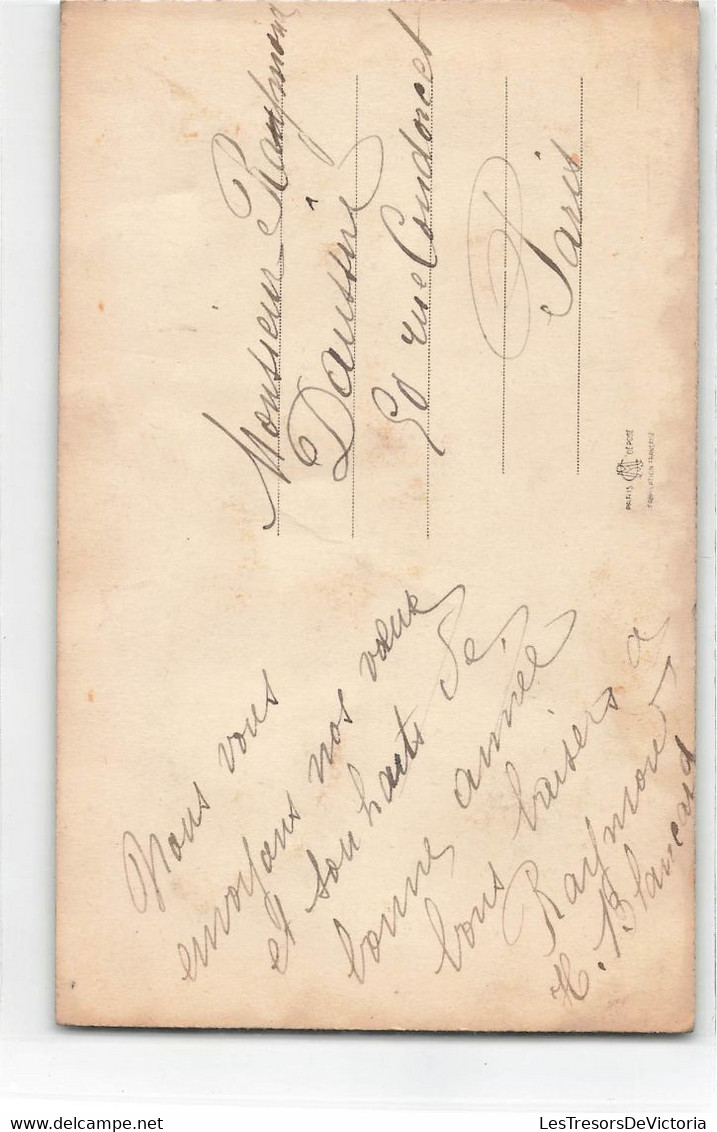 Nous vous
envoyons nos vœux
et souhaits de
bonne année
bons baisers a
Raymond
H. Blancard
Monsieur Raymond
rue Condorcet
Paris
PARIS DEPOSE
FABRICATION FRANÇAISE
delcampe.net
LesTresorsDeVictoria